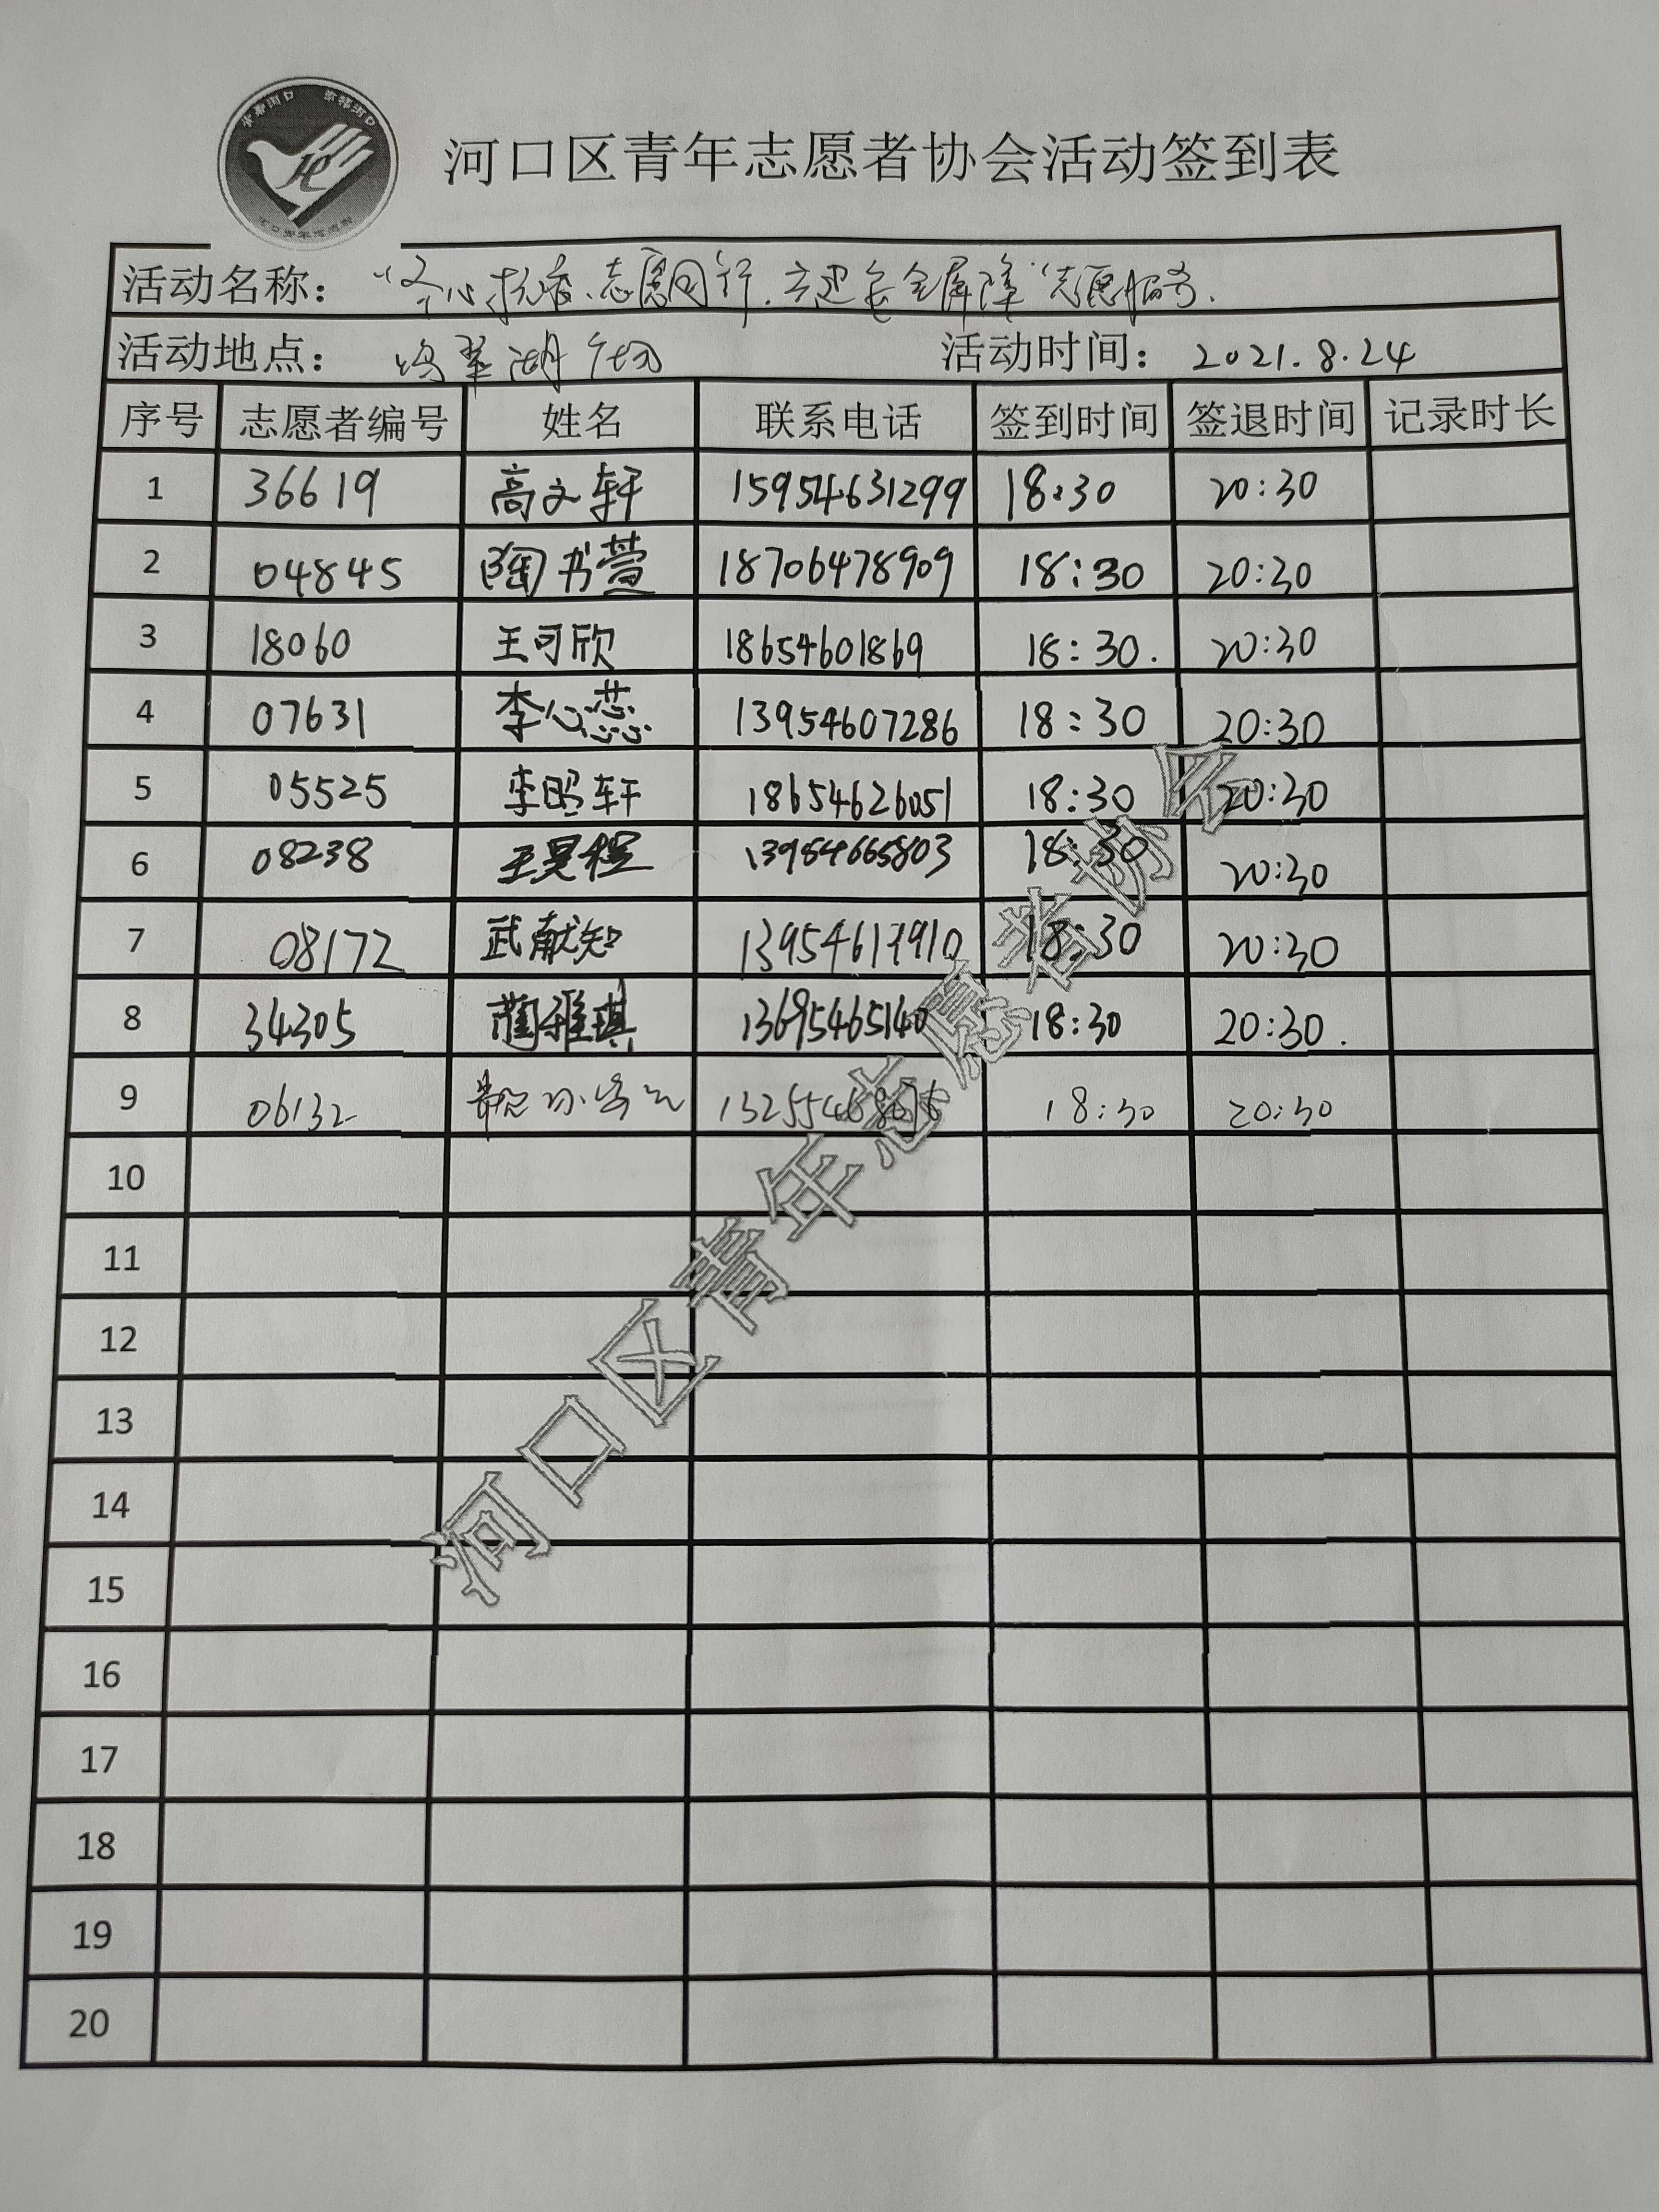 河口区青年志愿者协会活动签到表
活动名称： 心抗疫、志愿同行, 安全屏障"志愿服务.
活动地点： 翠湖广场 活动时间： 2021.8.24
序号 志愿者编号 姓名 联系电话 签到时间 签退时间 记录时长
1 36619 高文轩 15954631299 18:30 20:30
2 04845 陶书萱 18706478909 18:30 20:30
3 18060 王可欣 18654601869 18:30. 20:30
4 07631 李心蕊 13954607286 18:30 20:30
5 05525 李昭轩 18654626051 18:30 20:30
6 08238 王昊程 13954665803 18:30 20:30
7 08172 武献知 18:30 20:30
8 34305 蔺雅琪 13695465140 18:30 20:30.
9 06132 18:30 20:30
10
11
12
13
14
15
16
17
18
19
20
河口区青年志愿者协会